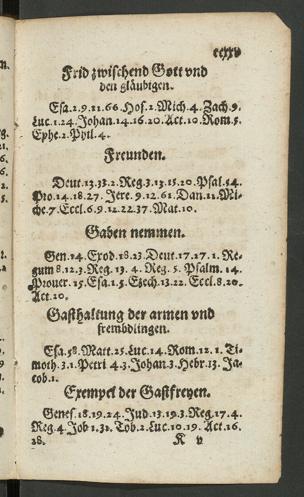 ccxxv
Frid zwischend Gott vnd
den gläubigen.
Esa.2.9.11.66 Hos.2.Mich.4.Zach.9.
Luc.1.24.Johan.14.16.20.Act.10.Rom.5.
Ephe.2.Phil.4.
Freunden.
Deut.13.33.2.Reg.3.13.15.20.Psal.54.
Pro.14.18.27.Jere.9.12.61.Dan.11.Mi-
che.7.Eccl.6.9.12.22.37.Mat.10.
Gaben nemmen.
Gen.14.Exod.18.23.Deut.17.27.1.Re-
gum 8.12.3.Reg.13.4.Reg.5.Psalm.14.
Prouer.15.Esa.1.5.Ezech.13.22.Eccl.8.20.
Act.20.
Gasthaltung der armen vnd
frembdlingen.
Esa.58.Matt.25.Luc.14.Rom.12.1.Ti-
moth.3.1.Petri 4.3.Johan.3.Hebr.13.Ja-
cob.1.
Exempel der Gastfreyen.
Genes.18.19.24.Jud.13.19.3.Reg.17.4.
Reg.4.Job 1.31.Tob.2.Luc.10.19.Act.16.
28.
K v